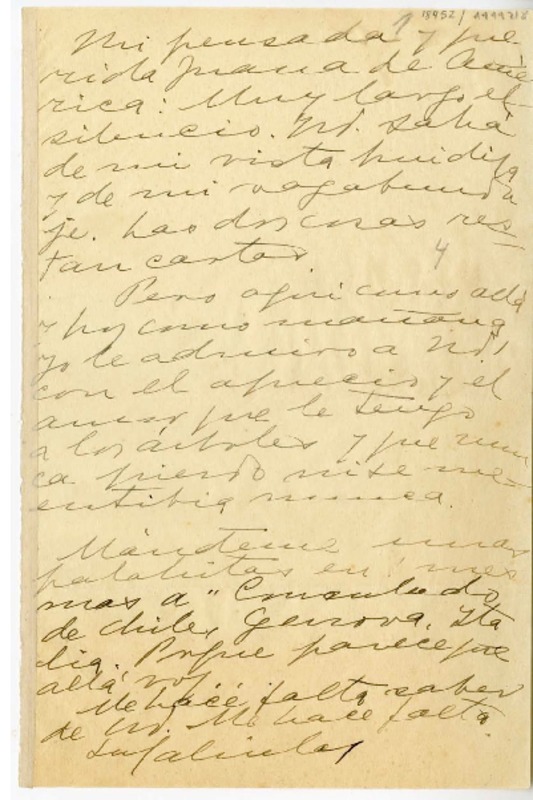 1
Mi pensada y que
rida Juana de Amé
rica: Muy largo el
silencio. Ud. sabía
de mi vista huidiza
y de mi vagabunda
je. Las dos cosas res
tan cartas
4
Pero aquí como allá
y hoy como mañana
yo le admiro a Ud.
con el aprecio y el
amor que le tengo
a los árboles y que nun
ca pierdo ni se me
entibia nunca.
Mándeme unas
palabritas en
mas a "Consulado
de Chile, Genova, Ita
lia. Porque parece que
allá voy.
Me hace falta saber
de Ud. Me hace falta.
Su Gabriela